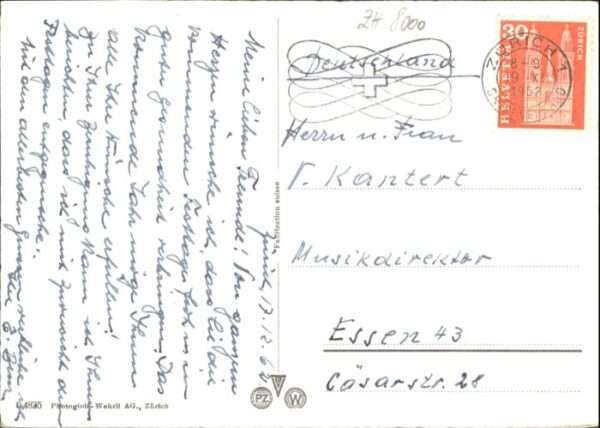 ZH 8000
Deutschland
30
HELVETIA
ZÜRICH
ZÜRICH 1
1962
Herrn u. Frau
V. Kantert
Musikdirektor
Essen 43
Cäsarstr. 28
Zürich, 17.12.62
Meine lieben Freunde! Von ganzem
Herzen wünsche ich, dass Sie die
kommenden Festtage in
guter Gesundheit verbringen. Das
kommende Jahr möge Ihnen
alle Ihre Wünsche erfüllen!
Zu Ihrer kann ich Ihnen
mitteilen, dass ich mit Zuversicht den
Festtagen entgegensehe.
Mit den allerbesten Grüssen verbleibe ich
Ihr
Fabrication suisse
Photoglob-Wehrli AG., Zürich
PZ W